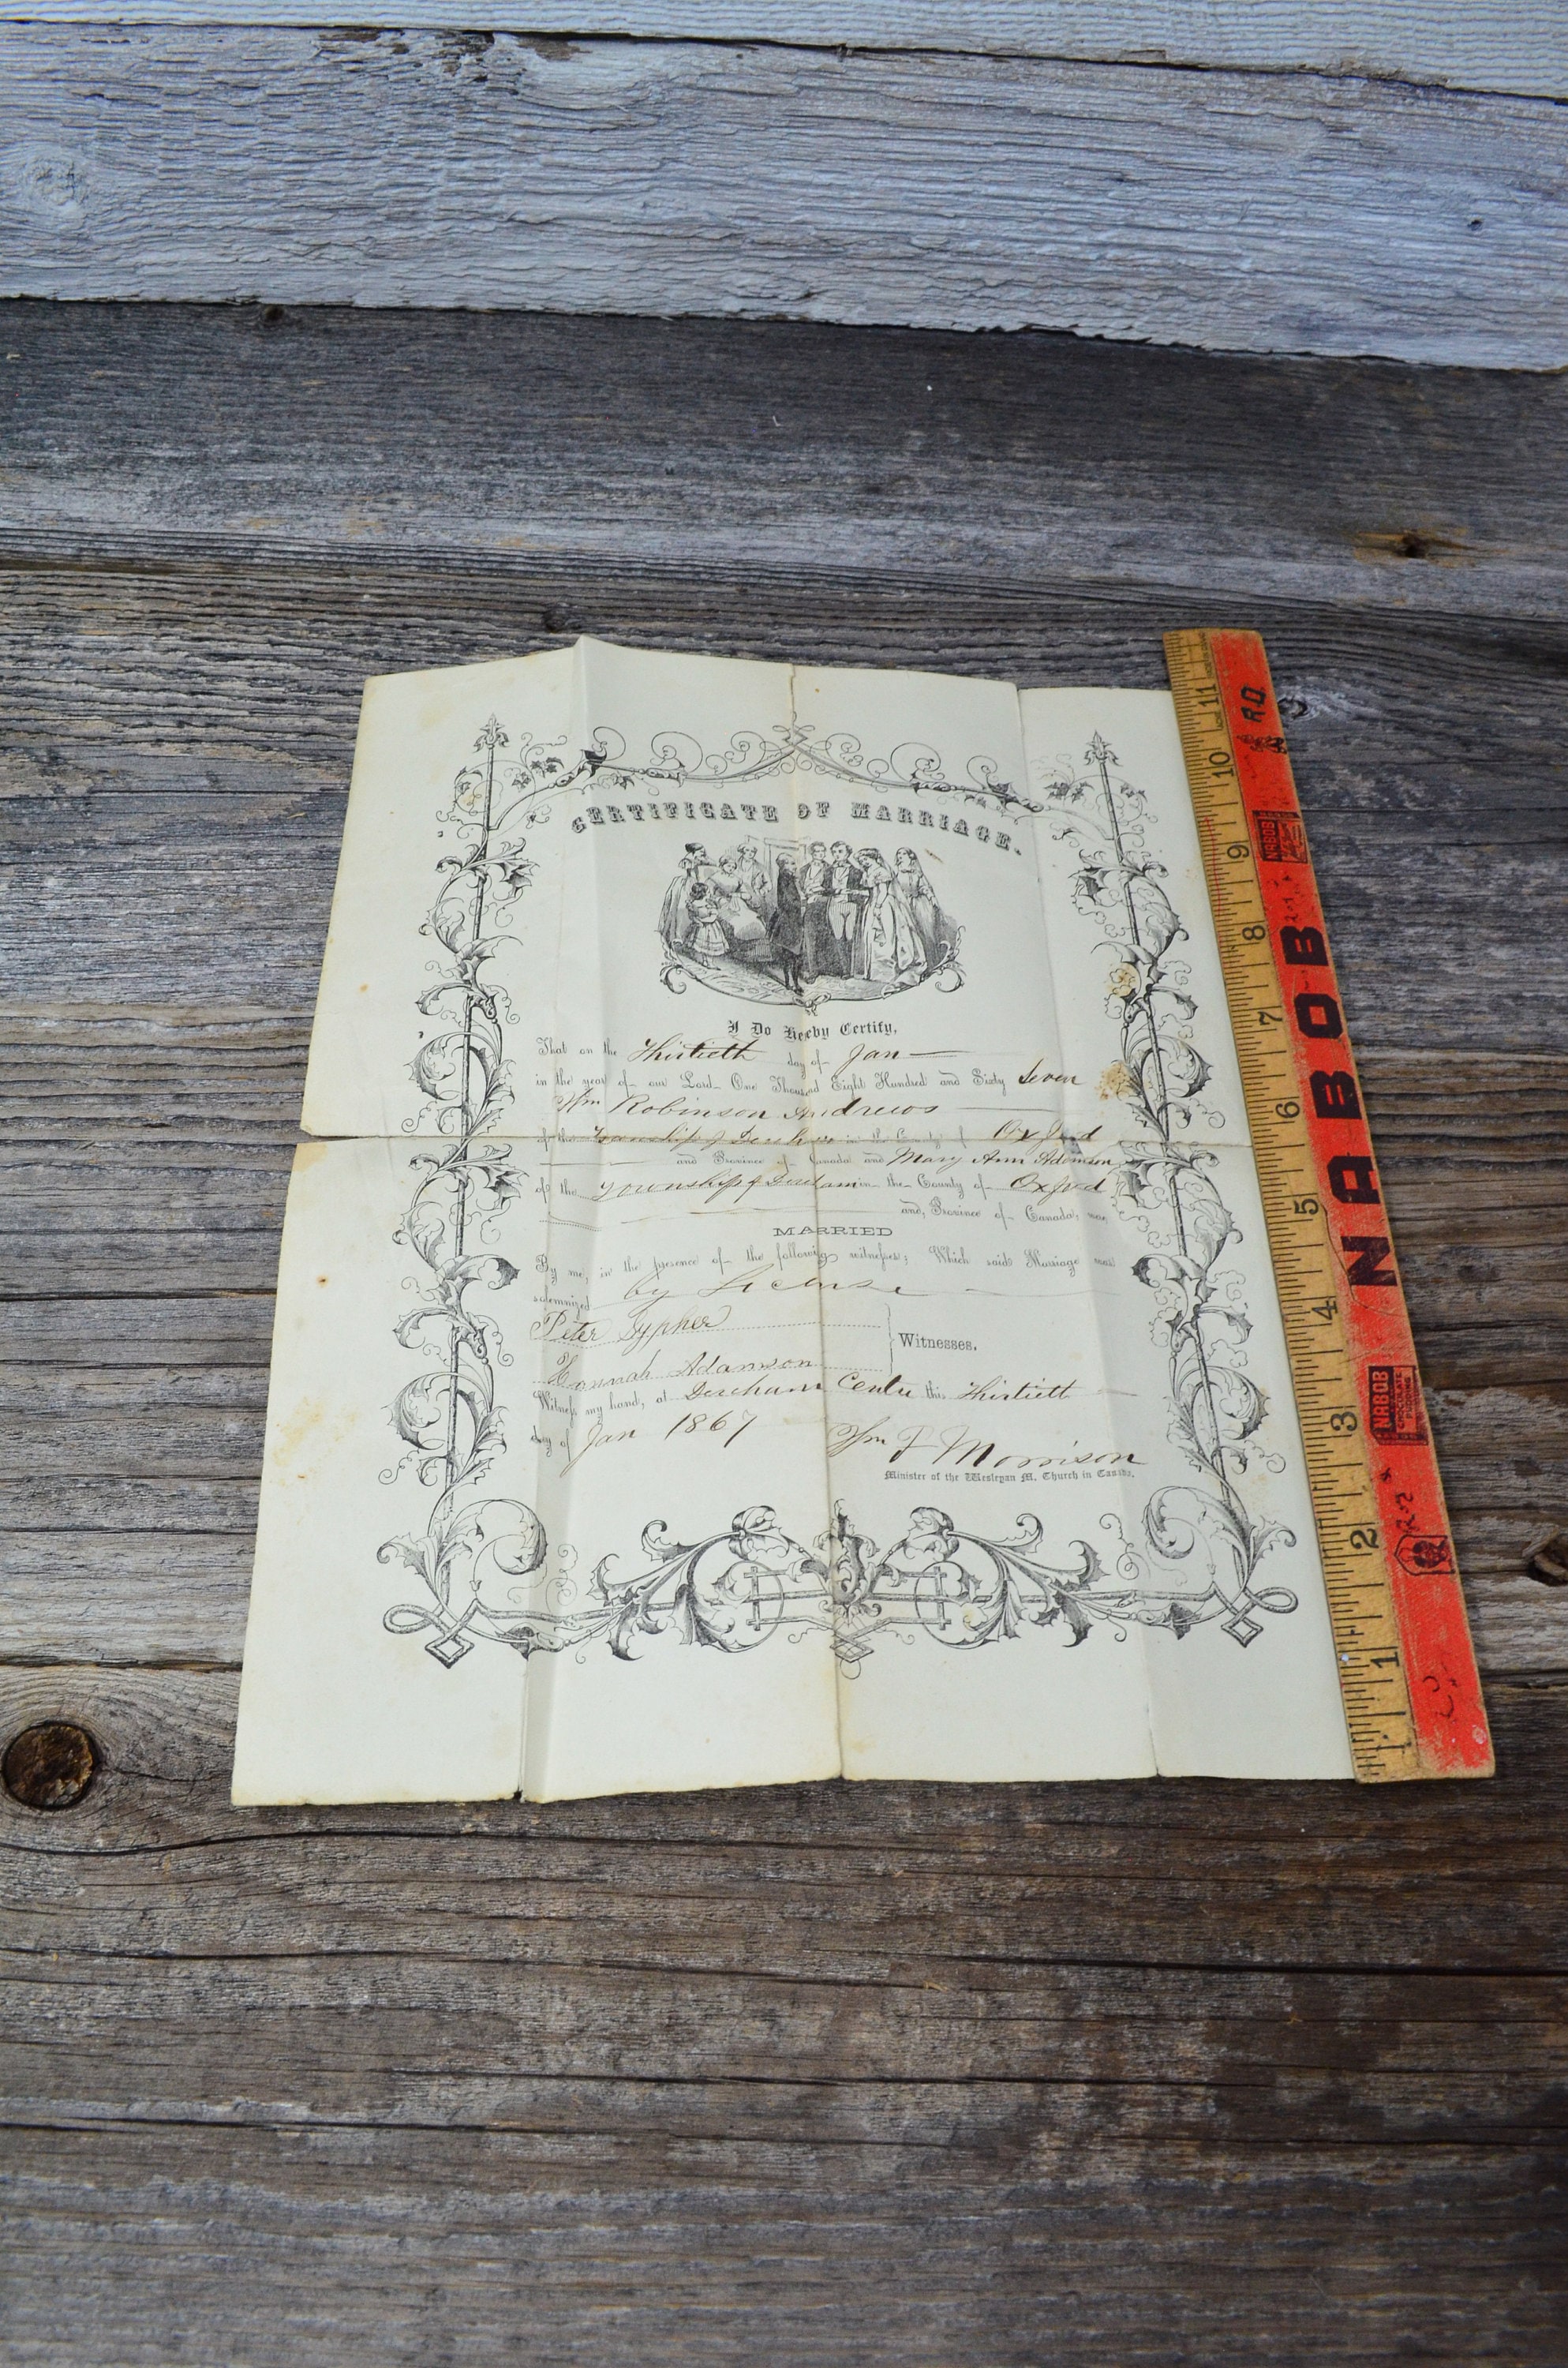 CERTIFICATE OF MARRIAGE.
I Do Hereby Certify,
That on the Thirtieth day of Jan
in the year of our Lord One Thousand Eight Hundred and Sixty Seven
Wm Robinson Andrews
of the Township of Dereham in the County of Oxford
and Province of Canada and Mary Ann Adamson
of the Township of Dereham in the County of Oxford
and, Province of Canada, were
MARRIED
By me, in the presence of the following witnesses; Which said Marriage was
solemnized by License
Peter Sypher
Hannah Adamson
Witnesses.
Witness my hand, at Dereham Centre this Thirtieth
day of Jan 1867
Wm F Morrison
Minister of the Wesleyan M. Church in Canada.
11
10
9
8
7
6
5
4
3
2
1
NABOB
NABOB
NABOB
CHOCOLATE
PUDDING